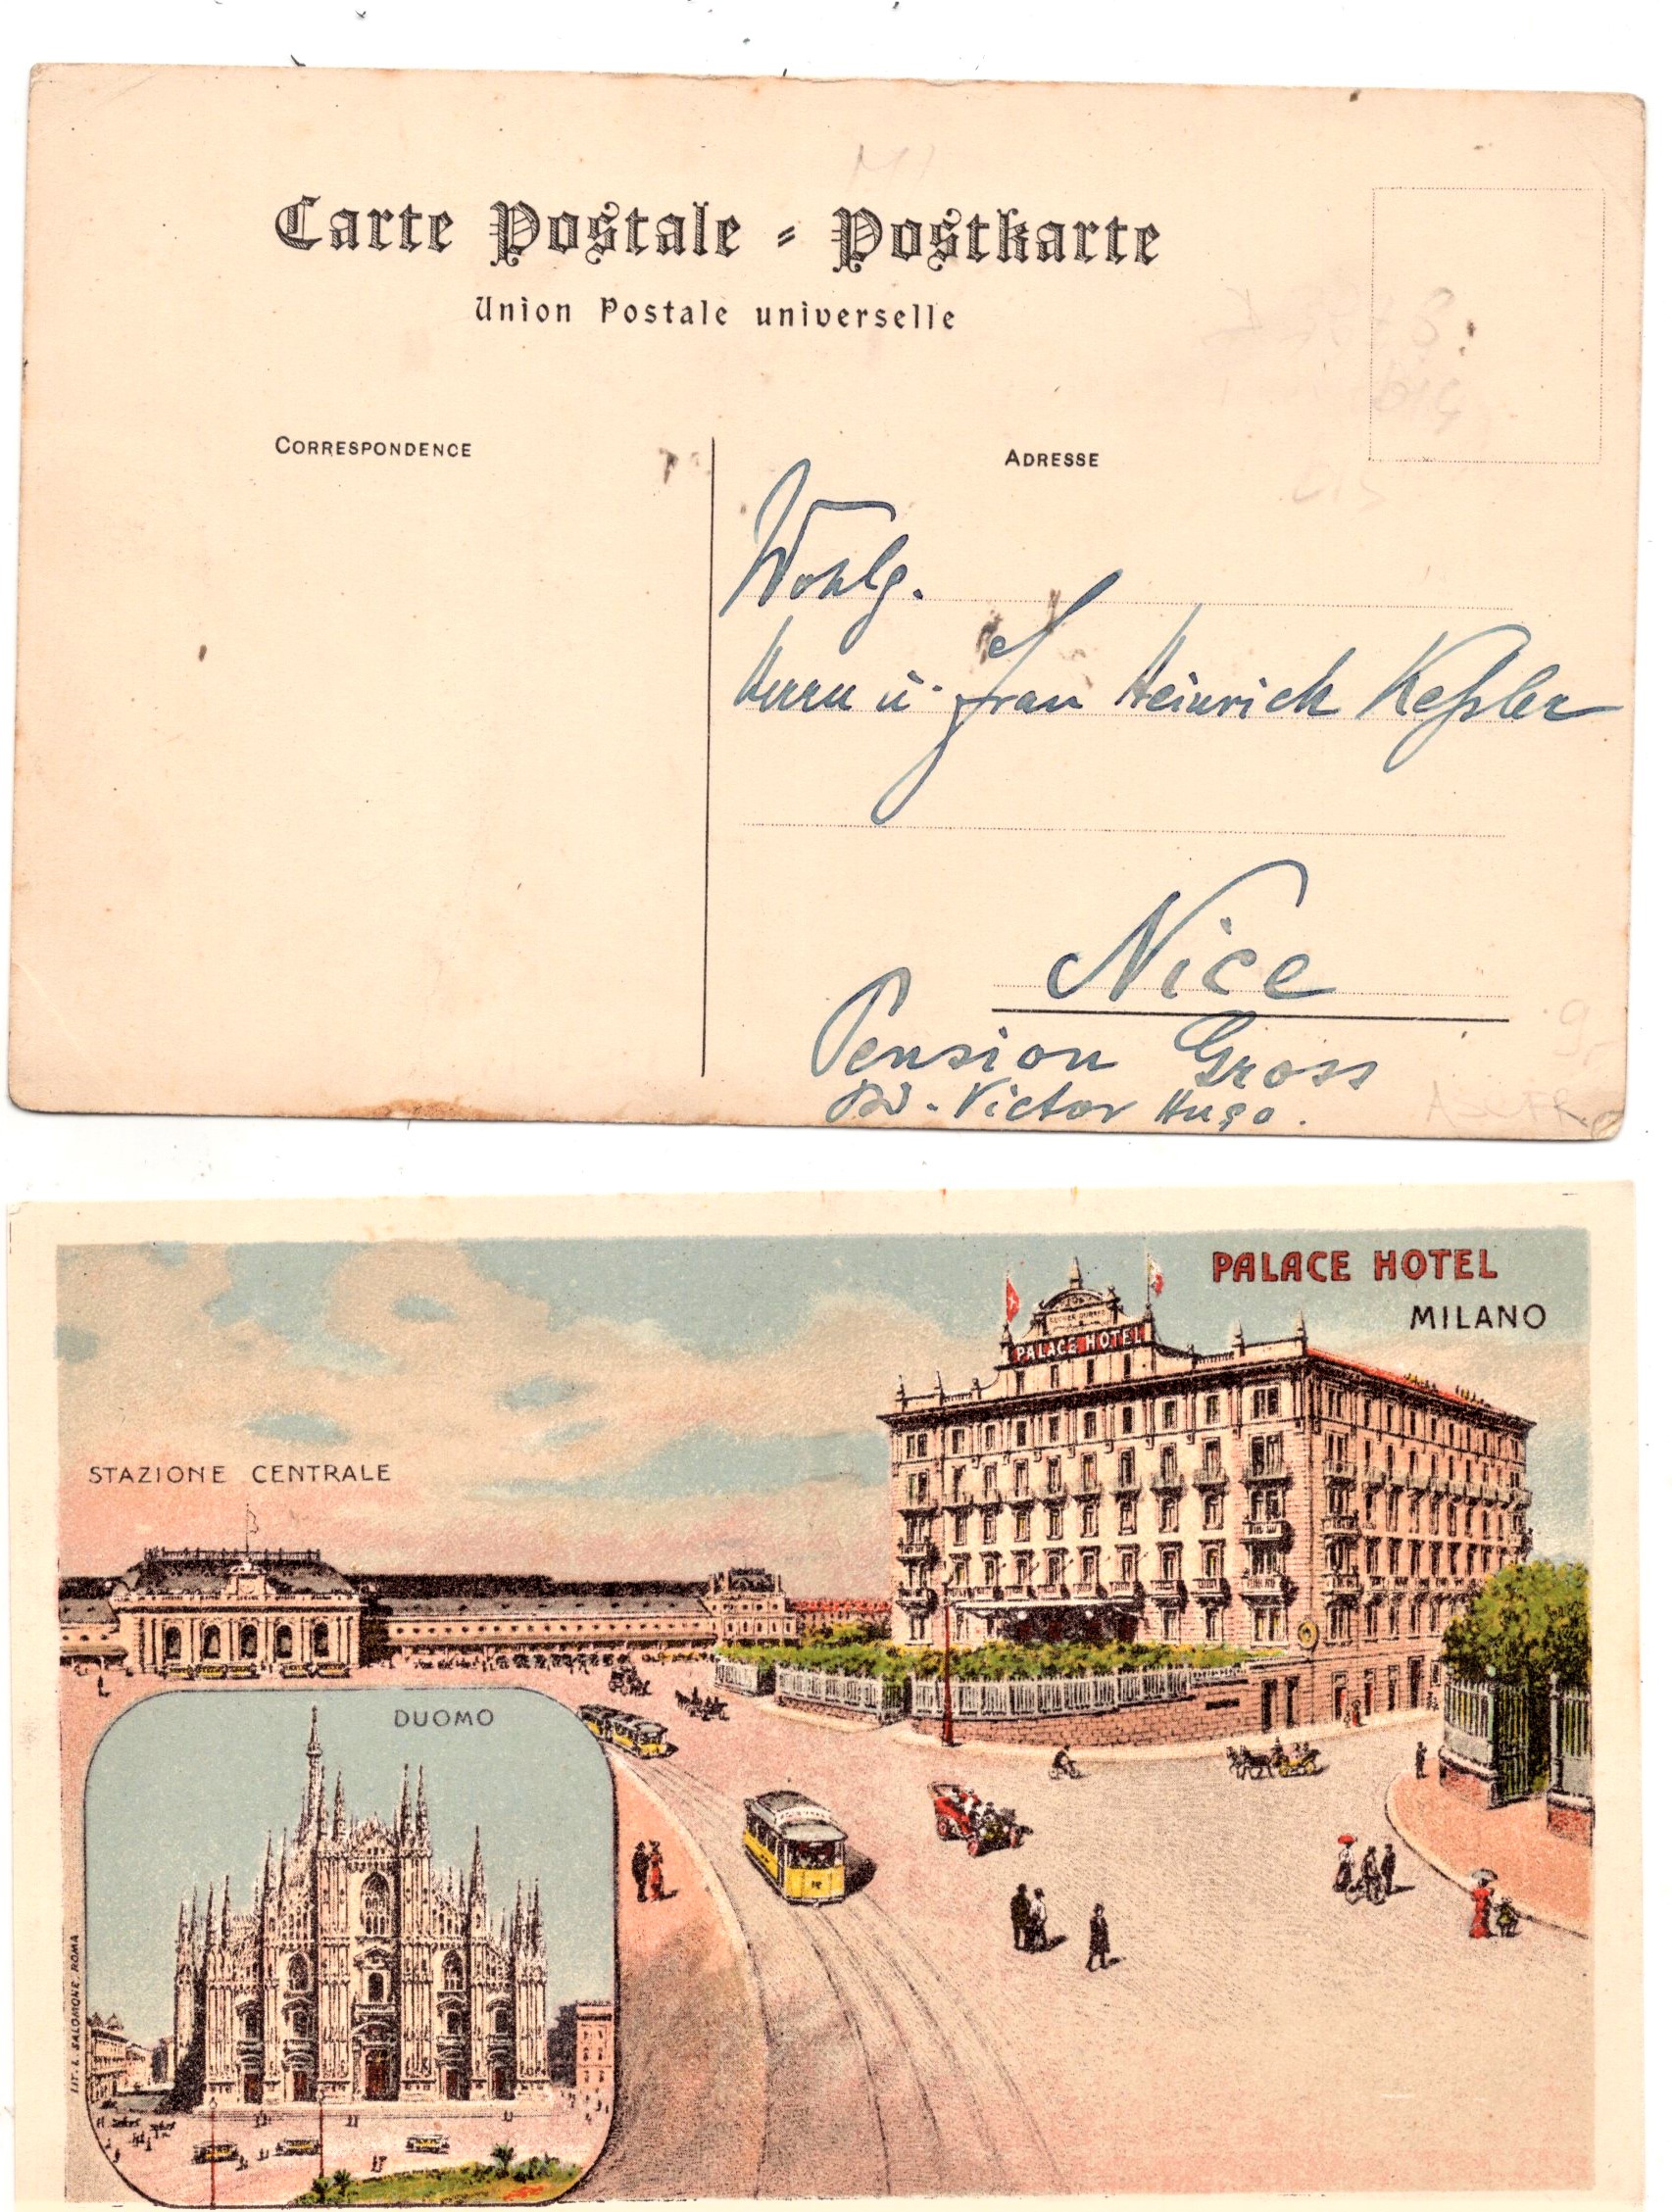 Carte Postale - Postkarte
Union Postale universelle
CORRESPONDENCE
ADRESSE
Wohlg.
Herrn u. Frau Heinrich Keßler
Nice
Pension Gross
Bd. Victor Hugo.
PALACE HOTEL
MILANO
PALACE HOTEL
STAZIONE CENTRALE
DUOMO
LIT. L. SALOMONE, ROMA